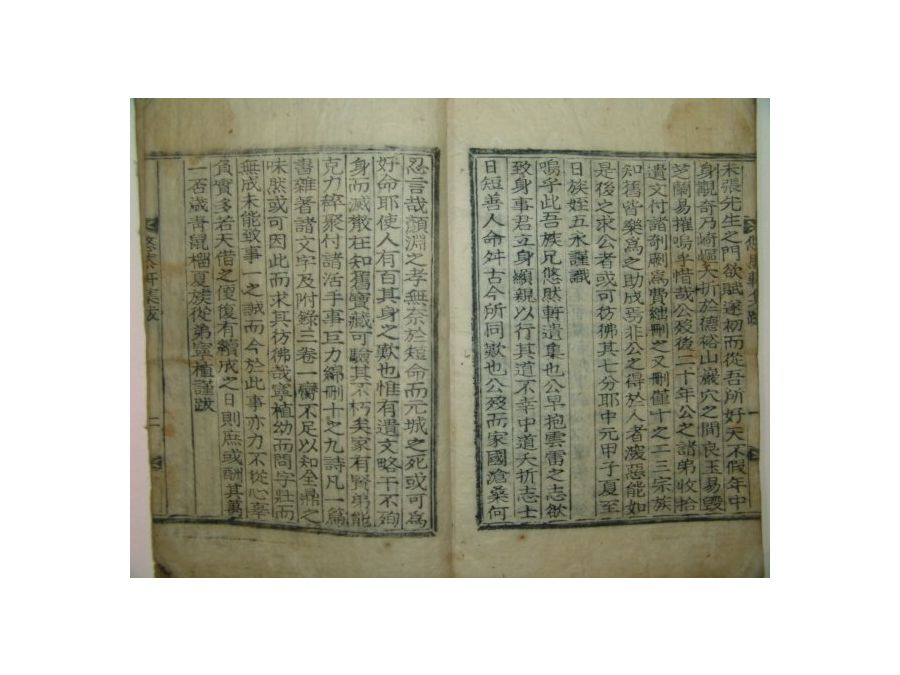 朱張先生之門欲賦遂初而從吾所好天不假年中
身觀奇乃崎嶇夭折於德裕山巖穴之間良玉易毀
芝蘭易摧嗚乎惜哉公歿後二十年公之諸弟收拾
遺文付諸剞劂爲費絀刪之又刪僅十之二三宗族
知舊皆樂爲之助成焉非公之得於人者深惡能如
是後之求公者或可彷彿其七分耶中元甲子夏至
日族姪五永謹識
嗚乎此吾族兄悠然軒遺集也公早抱雲雷之志欲
致身事君立身顯親以行其道不幸中道夭折志士
日短善人命舛古今所同歎也公歿而家國滄桑何
忍言哉顔淵之孝無奈於短命而元城之死或可爲
好命耶使人有百其身之歎也惟有遺文略干不殉
身而滅散在知舊寶藏可驗其不朽矣家有賢弟能
克力綷聚付諸活手事巨力綿刪十之九詩凡一篇
書雜著諸文字及附錄三卷一臠不足以知全鼎之
味然或可因此而求其彷彿哉寧植幼而問字壯而
無成未能致事一之誠而今於此事亦力不從心辜
負實多若天借之便復有續成之日則庶或酬其萬
一否歲靑鼠榴夏族從弟寧植謹跋
悠然軒集跋
一
二